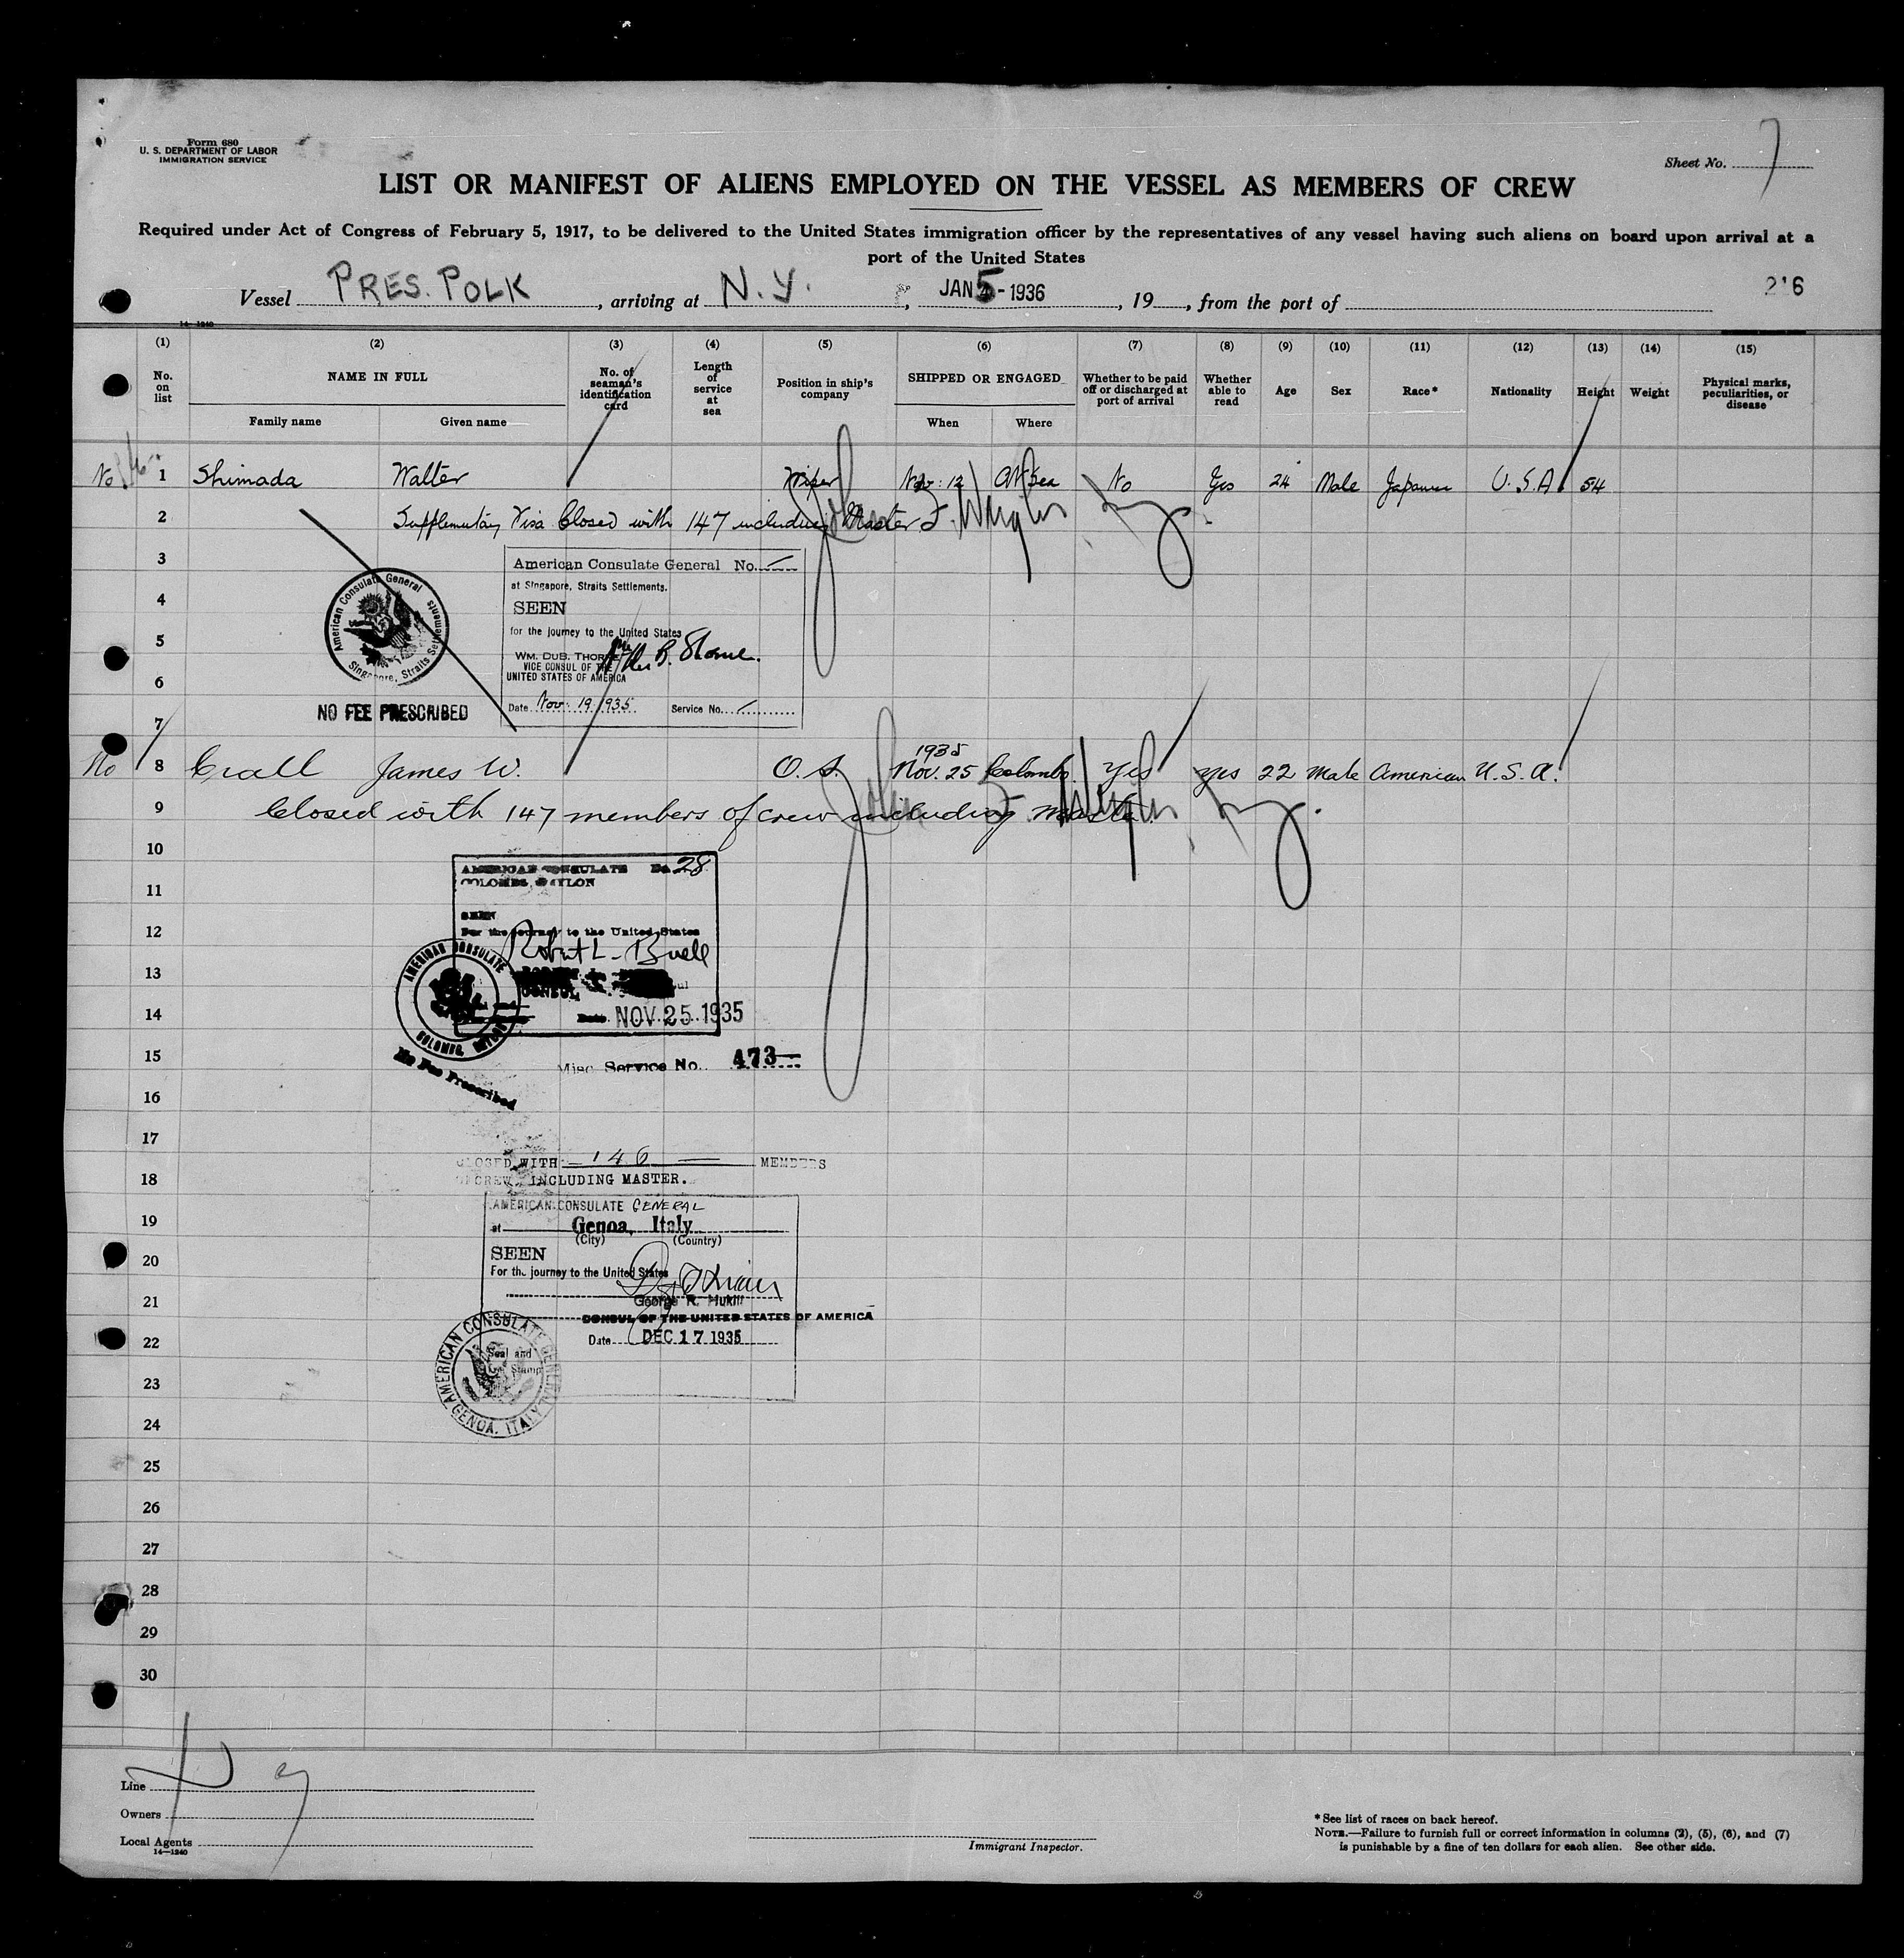 Form 680
U. S. DEPARTMENT OF LABOR
IMMIGRATION SERVICE
Sheet No. 7
LIST OR MANIFEST OF ALIENS EMPLOYED ON THE VESSEL AS MEMBERS OF CREW
Required under Act of Congress of February 5, 1917, to be delivered to the United States immigration officer by the representatives of any vessel having such aliens on board upon arrival at a
port of the United States
Vessel PRES. POLK, arriving at N. Y., JAN 5 - 1936, 19, from the port of
216
14-1240
(1) (2) (3) (4) (5) (6) (7) (8) (9) (10) (11) (12) (13) (14) (15)
No. on list
NAME IN FULL
Family name
Given name
No. of seaman's identification card
Length of service at sea
Position in ship's company
SHIPPED OR ENGAGED
When
Where
Whether to be paid off or discharged at port of arrival
Whether able to read
Age
Sex
Race*
Nationality
Height
Weight
Physical marks, peculiarities, or disease
No 1 Shimada Walter Wiper Nov: 12 At Sea No Yes 24 Male Japanese U.S.A. 54
2 Supplementary Visa Closed with 147 including Master
3
American Consulate General No.
at Singapore, Straits Settlements.
4
SEEN
5
for the journey to the United States
WM. DUB. THORNE
VICE CONSUL OF THE
UNITED STATES OF AMERICA
6
Date Nov: 19 1935 Service No.
American Consulate General
Singapore, Straits Settlements
NO FEE PRESCRIBED
7
1935
No 8 Crall James W. O.S. Nov. 25 Colombo Yes Yes 22 Male American U.S.A.
9 Closed with 147 members of crew including master.
10
AMERICAN CONSULATE No 28
COLOMBO, CEYLON
11
SEEN
12
For the journey to the United States
Robert L. Buell
13
CONSUL
14
Date NOV 25 1935
AMERICAN CONSULATE
COLOMBO, CEYLON
15
Misc. Service No. 473
No Fee Prescribed
16
17
CLOSED WITH 146 MEMBERS
18
OF CREW INCLUDING MASTER.
AMERICAN CONSULATE GENERAL
19
at Genoa, Italy
(City) (Country)
20
SEEN
For the journey to the United States
21
George R. Hukill
CONSUL OF THE UNITED STATES OF AMERICA
22
Date DEC 17 1935
Seal and
Stamp
AMERICAN CONSULATE GENERAL
GENOA, ITALY
23
24
25
26
27
28
29
30
Line
Owners
Local Agents
14-1240
Immigrant Inspector.
*See list of races on back hereof.
NOTE.—Failure to furnish full or correct information in columns (2), (5), (6), and (7)
is punishable by a fine of ten dollars for each alien. See other side.